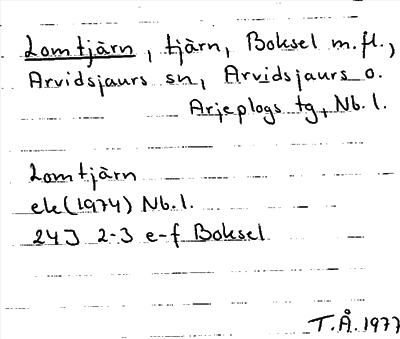 Lomtjärn, tjärn, Boksel m.fl.,
Arvidsjaurs sn, Arvidsjaurs o.
Arjeplogs tg, Nb.l.
Lomtjärn
ek (1974) Nb.l.
24J 2-3 e-f Boksel
T.Å. 1977